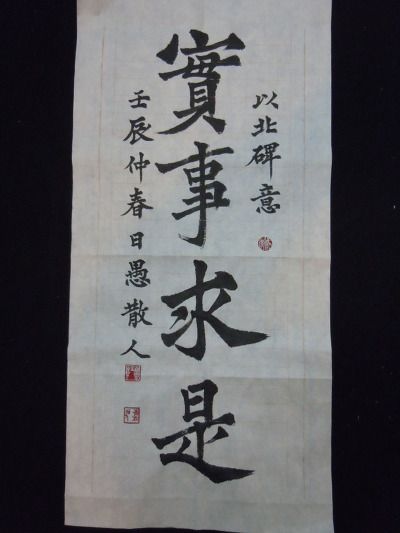 以北碑意
實事求是
壬辰仲春日愚散人